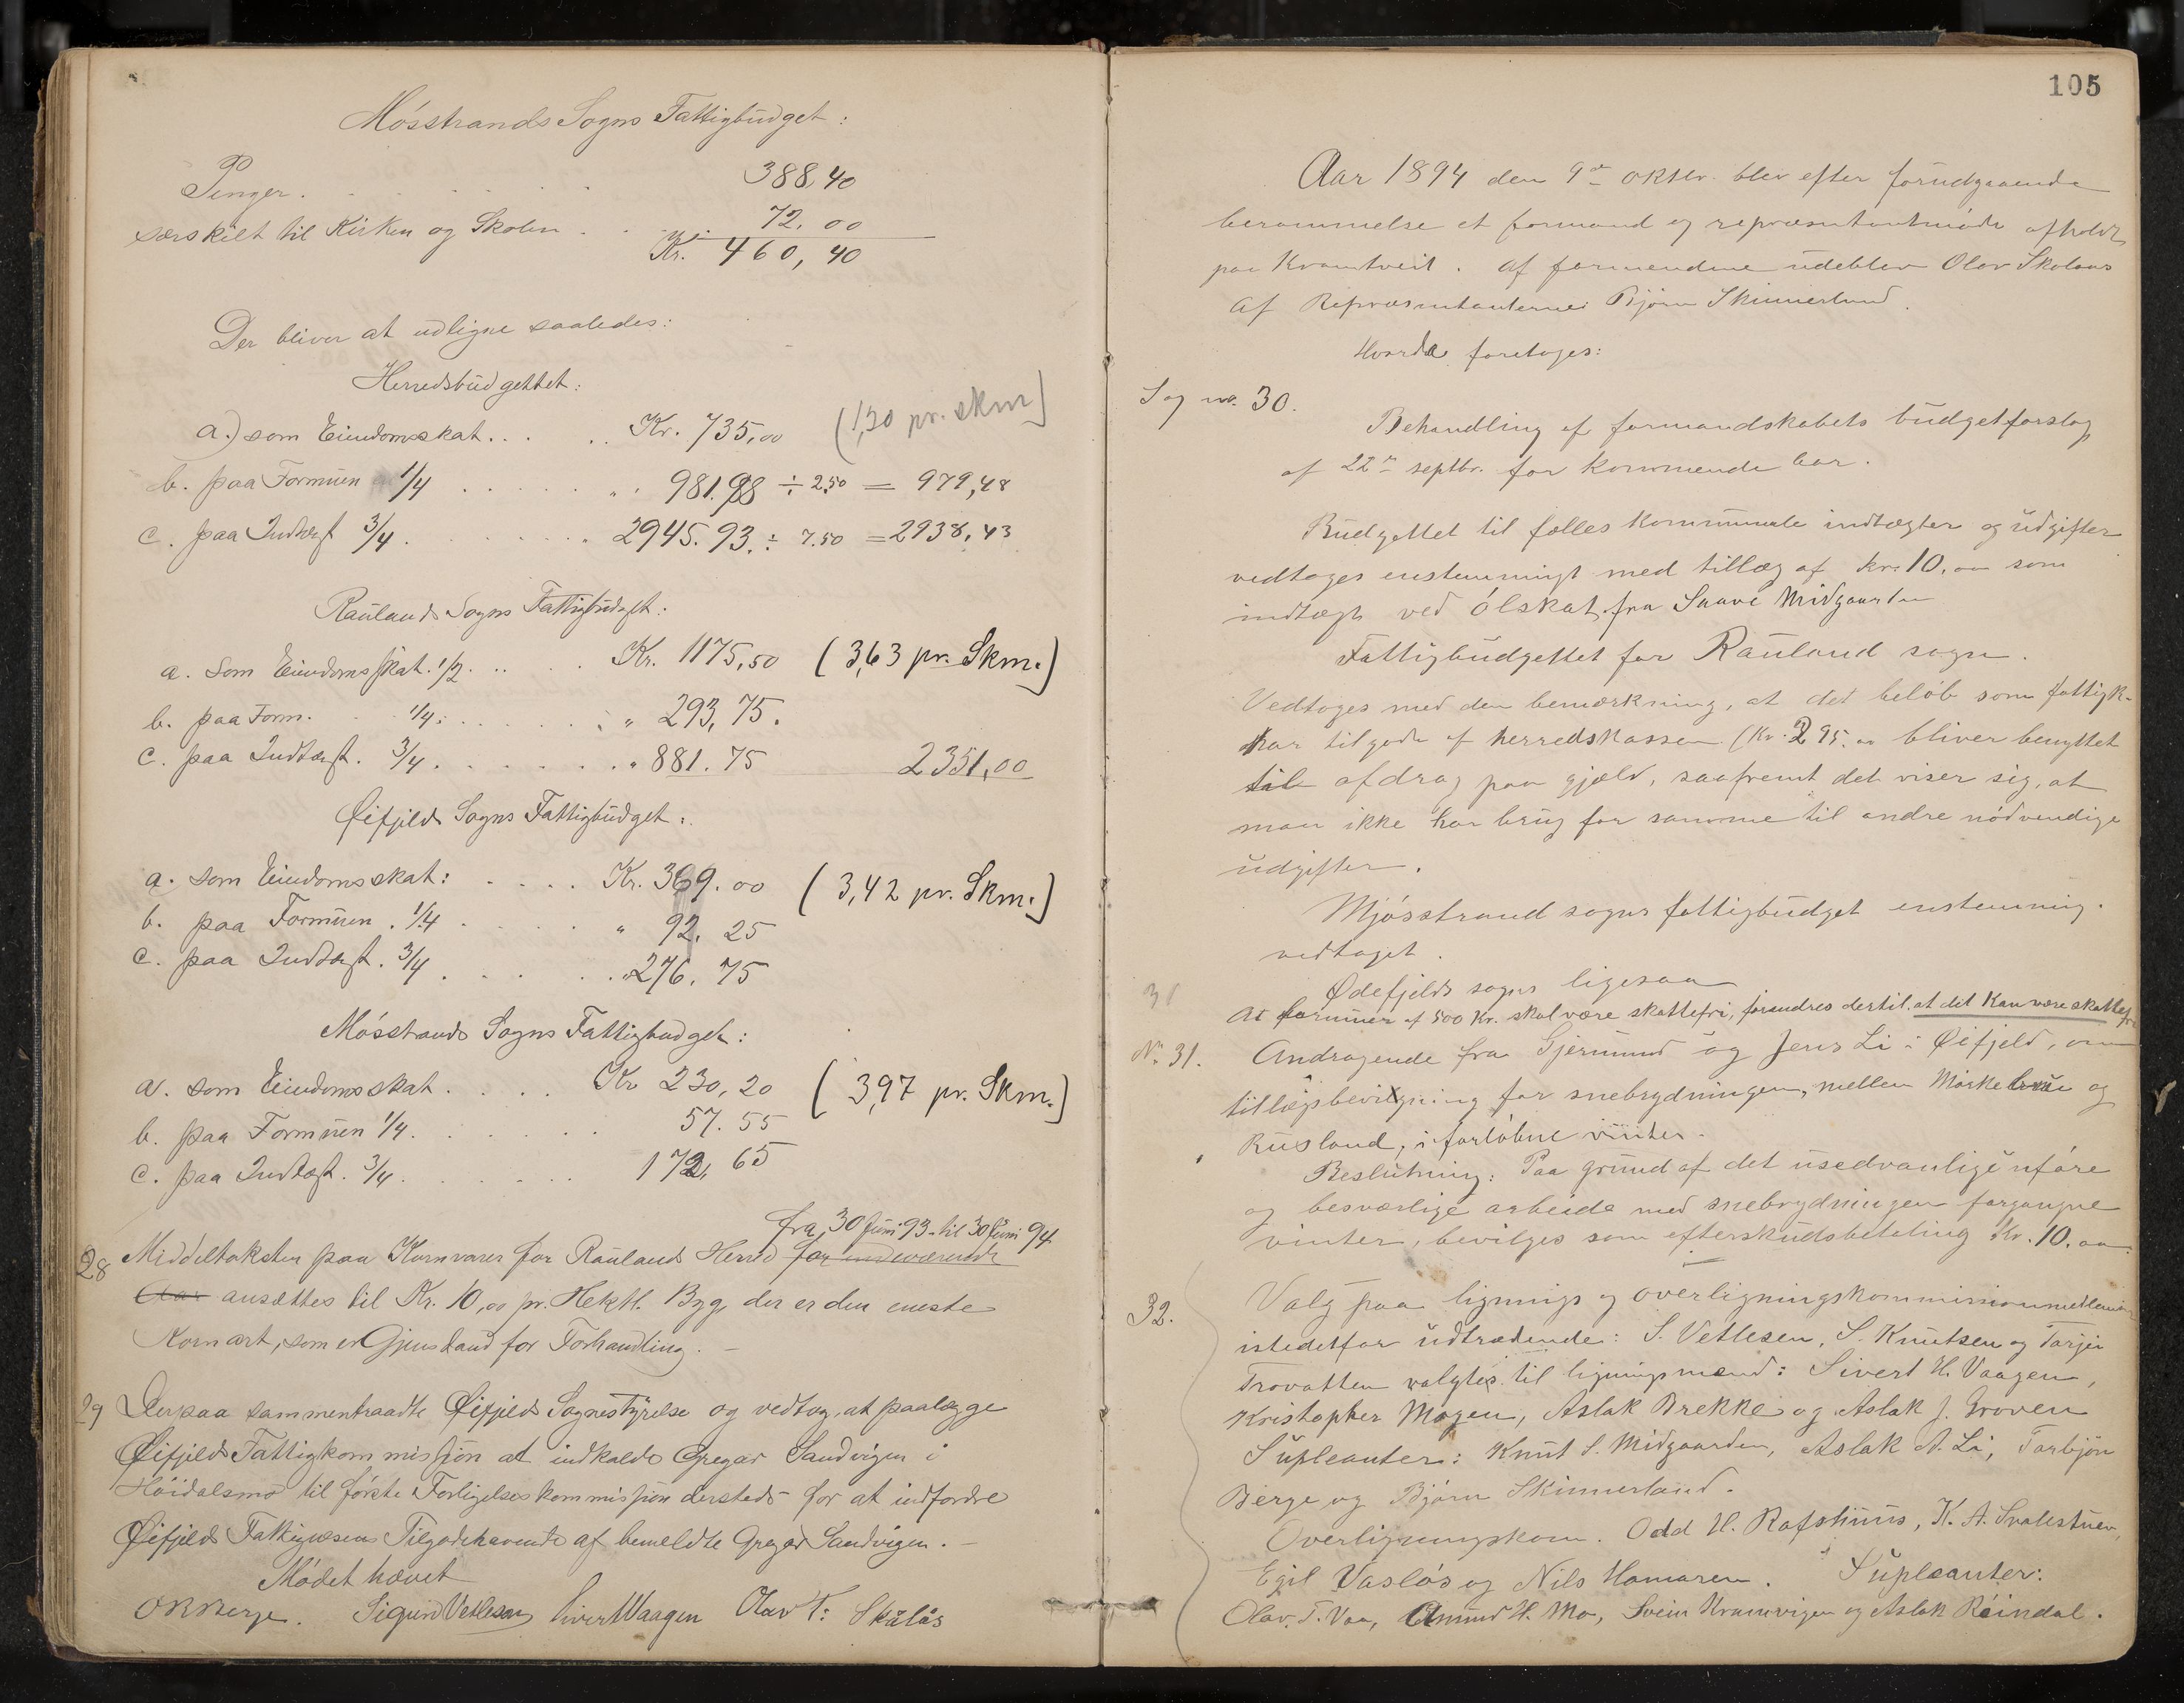 Mósstrands Sogns Fattigbudget:
Penger. . . . . . 388,40
særskilt til Kirken og Skolen . . . 72.00
Kr. 460,40
Der bliver at udligne saaledes:
Herredsbudgettet:
a.) som Eiendomsskat. . . . . Kr. 735,00 (1,30 pr. skm)
b. paa Formuen 1/4 . . . . . " 981.98 ÷ 2,50 = 979,48
c. paa Indtægt 3/4 . . . . . " 2945.93. ÷ 7.50 = 2938,43
Raulands Sogns Fattigbudget:
a. som Eiendomsskat. 1/2. . . . . Kr. 1175,50 (3,63 pr. Skm.)
b. paa Form. 1/4. . . . . . " 293,75.
c. paa Indtægt. 3/4. . . . . . " 881.75 2351,00
Øifjelds Sogns Fattigbudget:
a. som Eiendomsskat: . . . . Kr. 369.00 (3,42 pr. Skm.)
b. paa Formuen . 1/4 . . . . . " 92.25
c. paa Indtægt. 3/4 . . . . . " 276.75
Mósstrands Sogns Fattigbudget:
a. som Eiendomsskat. . . . . Kr 230,20 (3,97 pr. Skm.)
b. paa Formuen 1/4. . . . . . 57.55
c. paa Indtægt. 3/4. . . . . . 172,65
fra 30 Juni 93 til 30 Juni 94
28 Middeltaksten paa Kornvarer for Raulands Herred for indeværende
Aar ansættes til Kr. 10,00 pr. Hektl. Byg, der er den eneste
Kornart, som er Gjenstand for Forhandling. –
29 Derpaa sammentraadte Øifjelds Sognestyrelse og vedtog, at paalægge
Øifjelds Fattigkommission at indkalde Gregar Sandvigen i
Höidalsmo til förste Forligelseskommission dersteds for at indfordre
Øifjelds Fattigvæsens Tilgodehavende af bemeldte Gregar Sandvigen. –
Mødet hævet
OKBerge. Sigurd Vetlesen Sivert Waagen Olav T. Skålås
105
Aar 1894 den 9de oktbr. blev efter forudgaaende
berammelse et formand og repræsentantmøde afholdt
paa Kromtveit. af formendene udeblev Olav Skolaas
af Repræsentanterne: Bjørn Skinnerlund.
Hvorda foretoges:
Sag no. 30.
Behandling af formandskabets budgetforslag
af 22de septbr. for kommende aar.
Budgettet til fælles kommunale indtægter og udgifter
vedtoges enstemmigt med tillæg af kr. 10.00 som
indtægt ved ólskat fra Saave Midgaarden
Fattigbudgettet for Rauland sogn.
Vedtoges med den bemærkning, at det beløb som fattigk-
har tilgode af herredskassen (Kr. 295.00 bliver benyttet
til afdrag paa gjæld, saafremt det viser sig, at
man ikke har brug for samme til andre nødvendige
udgifter.
Mjósstrand sogns fattigbudget enstemmig.
vedtaget.
Ødefjelds sogns ligesaa
31 At formuer af 500 Kr. skal være skattefri, forandres dertil, at det kan være skattefri
No. 31. Andragende fra Gjermund og Jens Li i Øifjeld, om
tillægsbevilgning for snebrydningen, mellem Mørkebrue og
Rusland, i forløbne vinter.
Beslutning: Paa grund af det usedvanlige uføre
og besværlige arbeide med snebrydningen forgangne
vinter, bevilges som efterskudsbetaling Kr. 10.00.
32. Valg paa lignings og overligningskommissionsmedlemmer
istedetfor udtrædende: S. Vetlesen, S. Knutsen og Tarjei
Trovatten valgtes til ligningsmænd: Sivert H. Vaagen,
Kristopher Mogen, Aslak Brekke og Aslak J. Groven
Supleanter: Knut S. Midgaarden, Aslak A. Li, Torbjön
Berge og Bjørn Skinnerland.
Overligningskom. Odd H. Rafshuus, K. A. Svalestuen,
Egil Vaslós og Nils Hamaren. Supleanter:
Olav. T. Vaa, Amund H. Mo, Svein Kromvigen og Aslak Reindal.